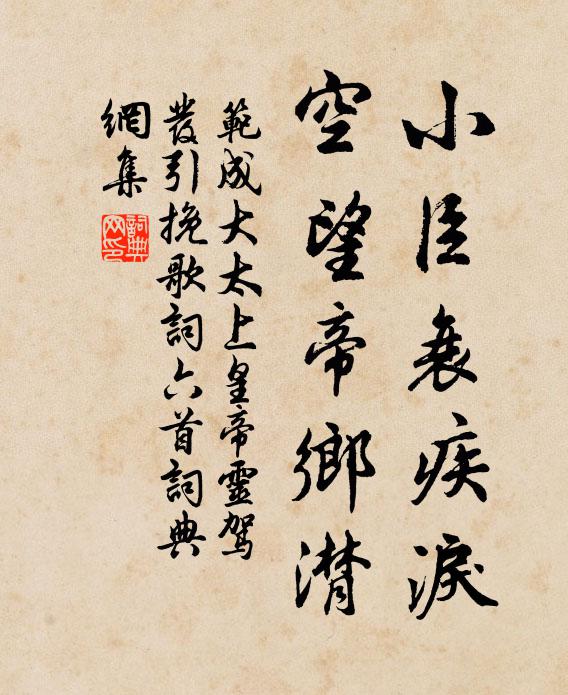 小臣衰疾淚
空望帝鄉潸
範成大太上皇帝靈駕
發引挽歌詞六首詞典
網集
詞典網印